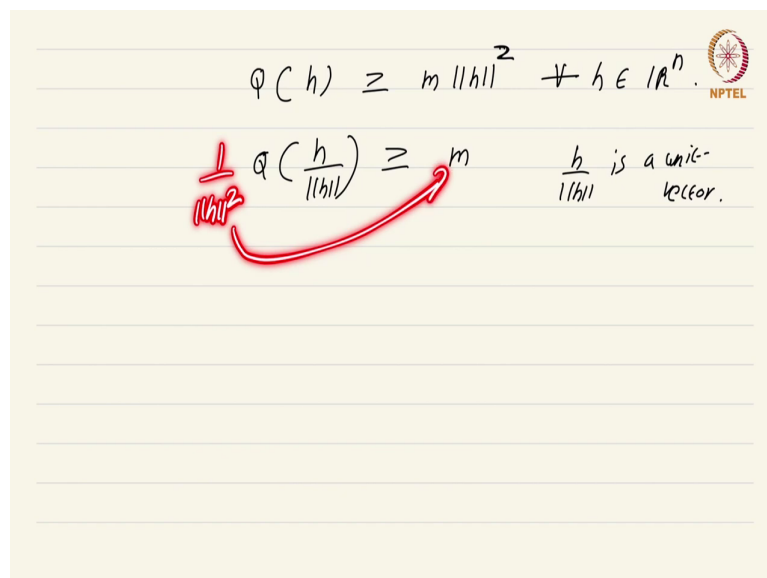 Q(h) ≥ m ||h||² ∀ h ∈ ℝⁿ.
NPTEL
1/||h||² Q(h/||h||) ≥ m h/||h|| is a unit
vector.